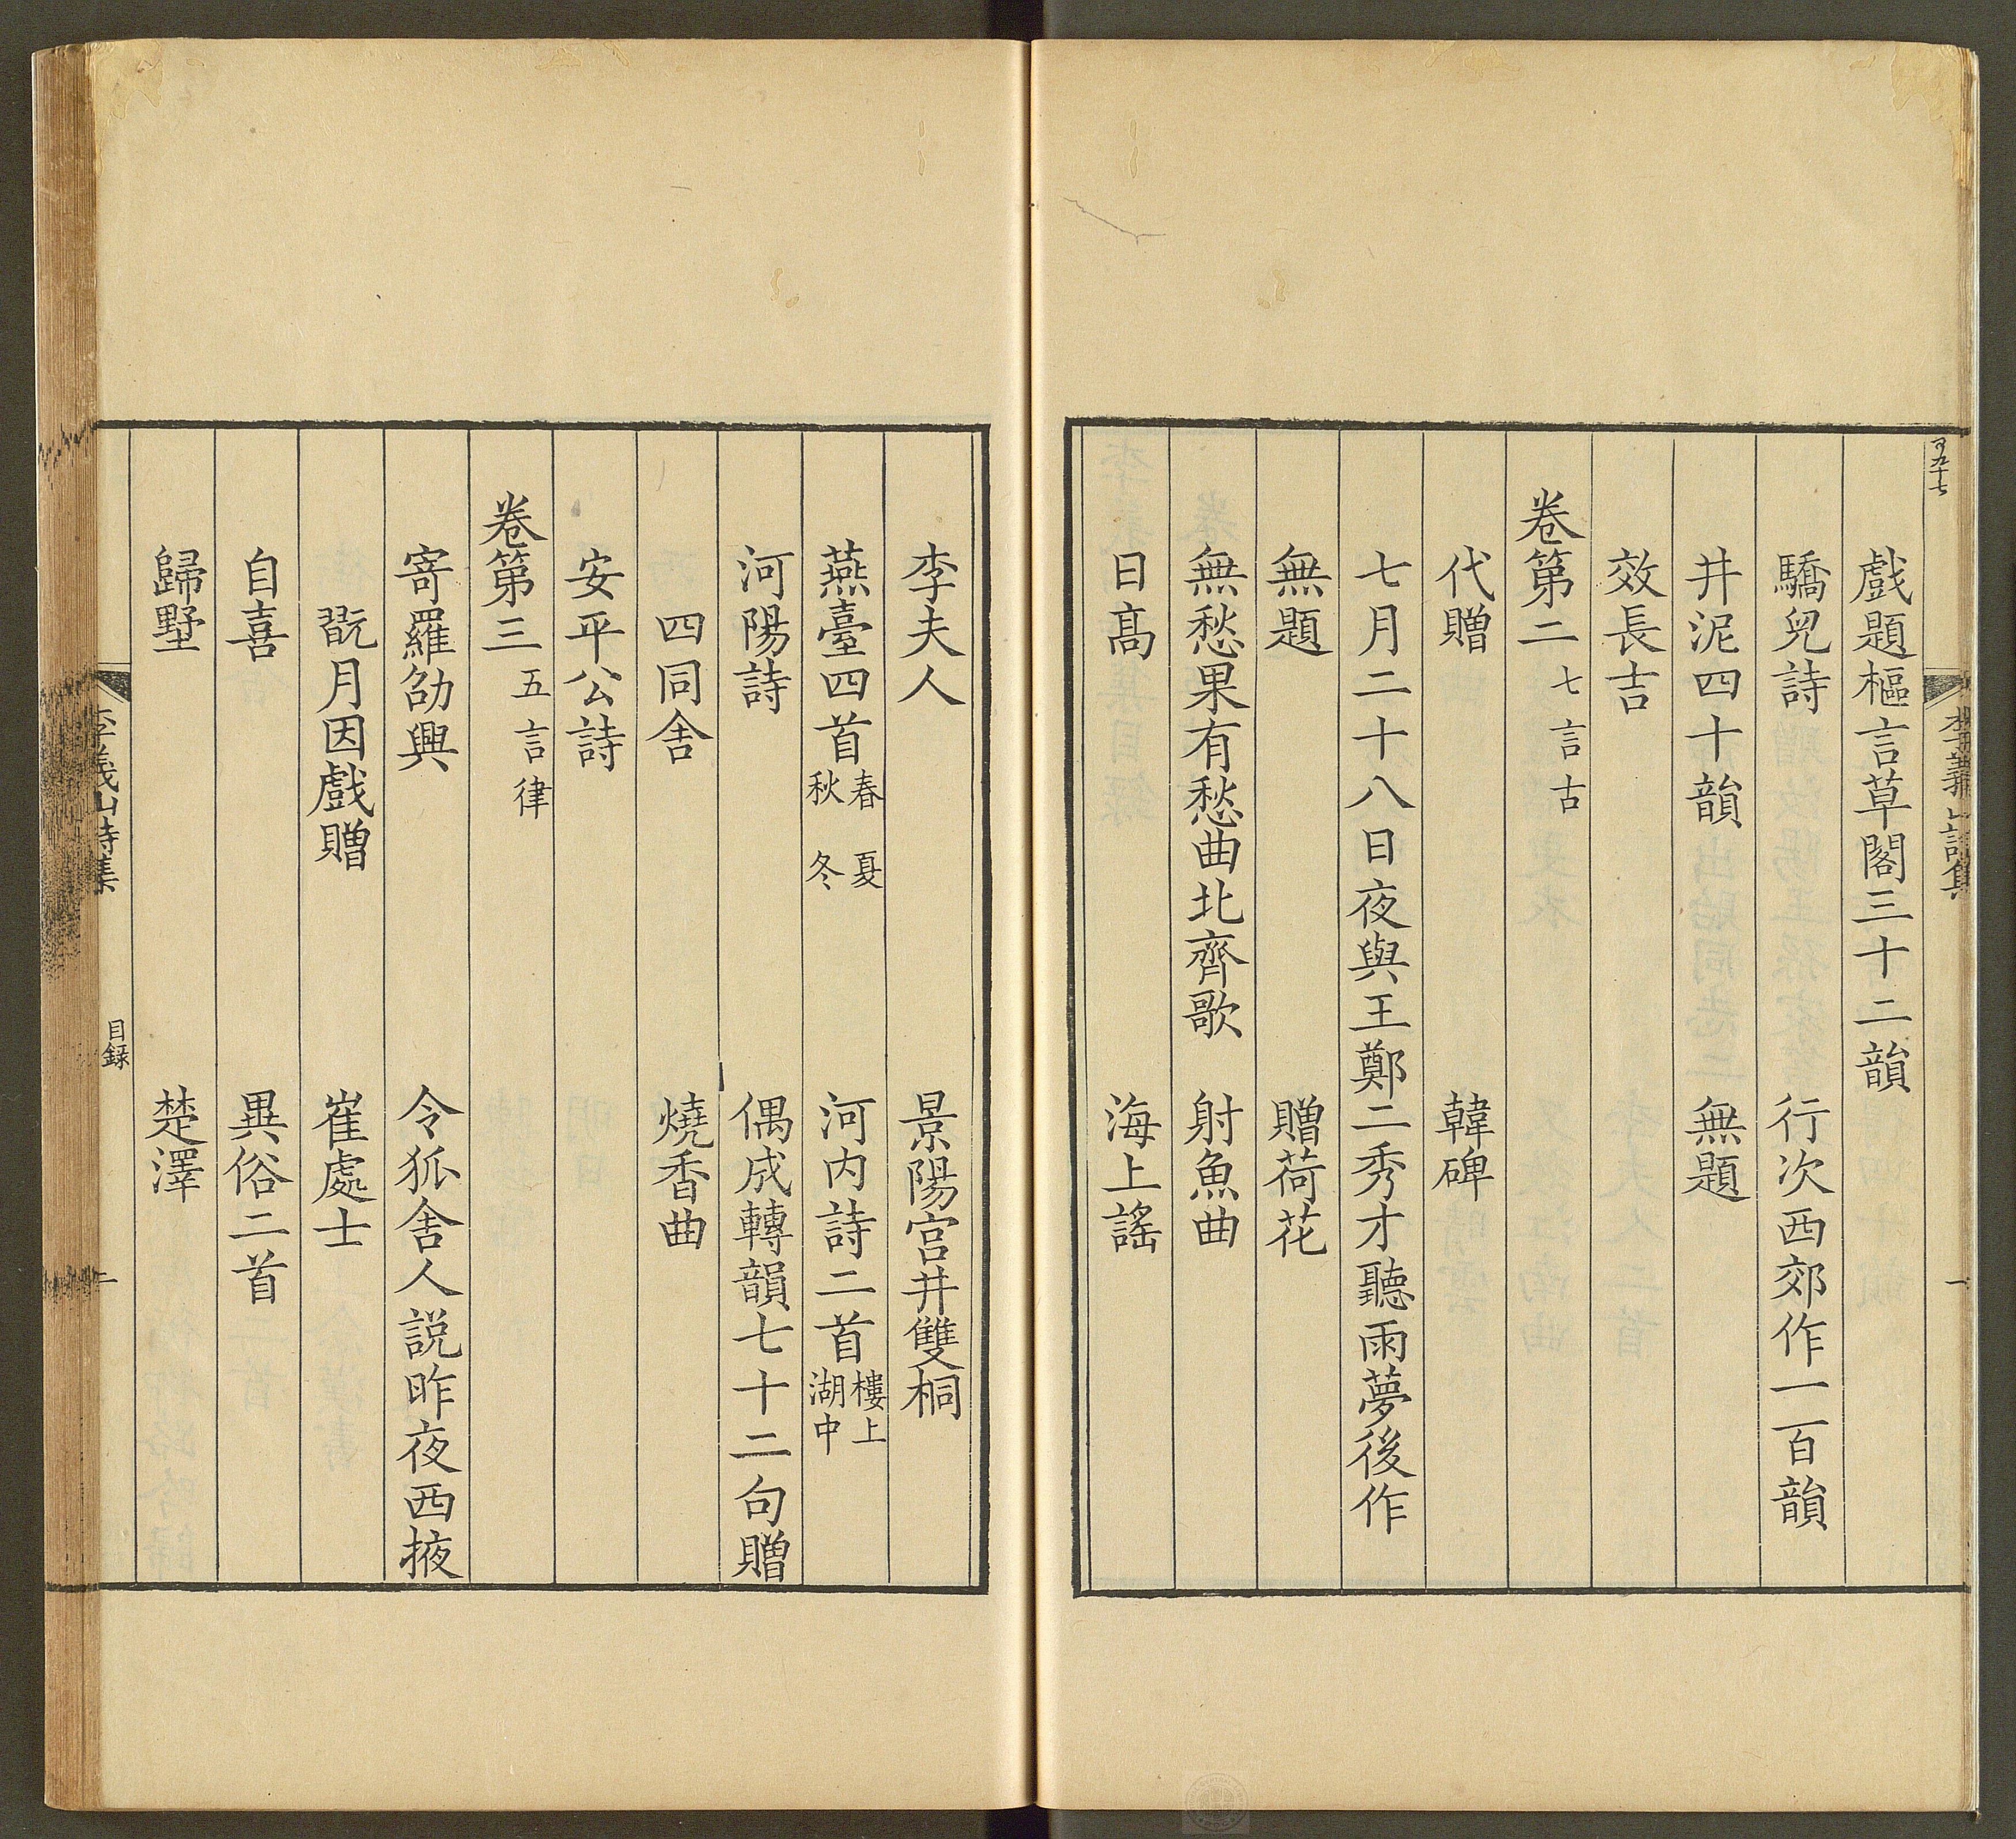 戲題樞言草閣三十二韻
驕兒詩　行次西郊作一百韻
井泥四十韻　無題
效長吉
卷第二 七言古
代贈　韓碑
七月二十八日夜與王鄭二秀才聽雨夢後作
無題　贈荷花
無愁果有愁曲北齊歌　射魚曲
日高　海上謠
李夫人　景陽宮井雙桐
燕臺四首 春夏秋冬　河內詩二首 樓上湖中
河陽詩　偶成轉韻七十二句贈
四同舍　燒香曲
安平公詩
卷第三 五言律
寄羅劭興　令狐舍人說昨夜西掖
翫月因戲贈　崔處士
自喜　異俗二首
歸墅　楚澤
李義山詩集　目録　二